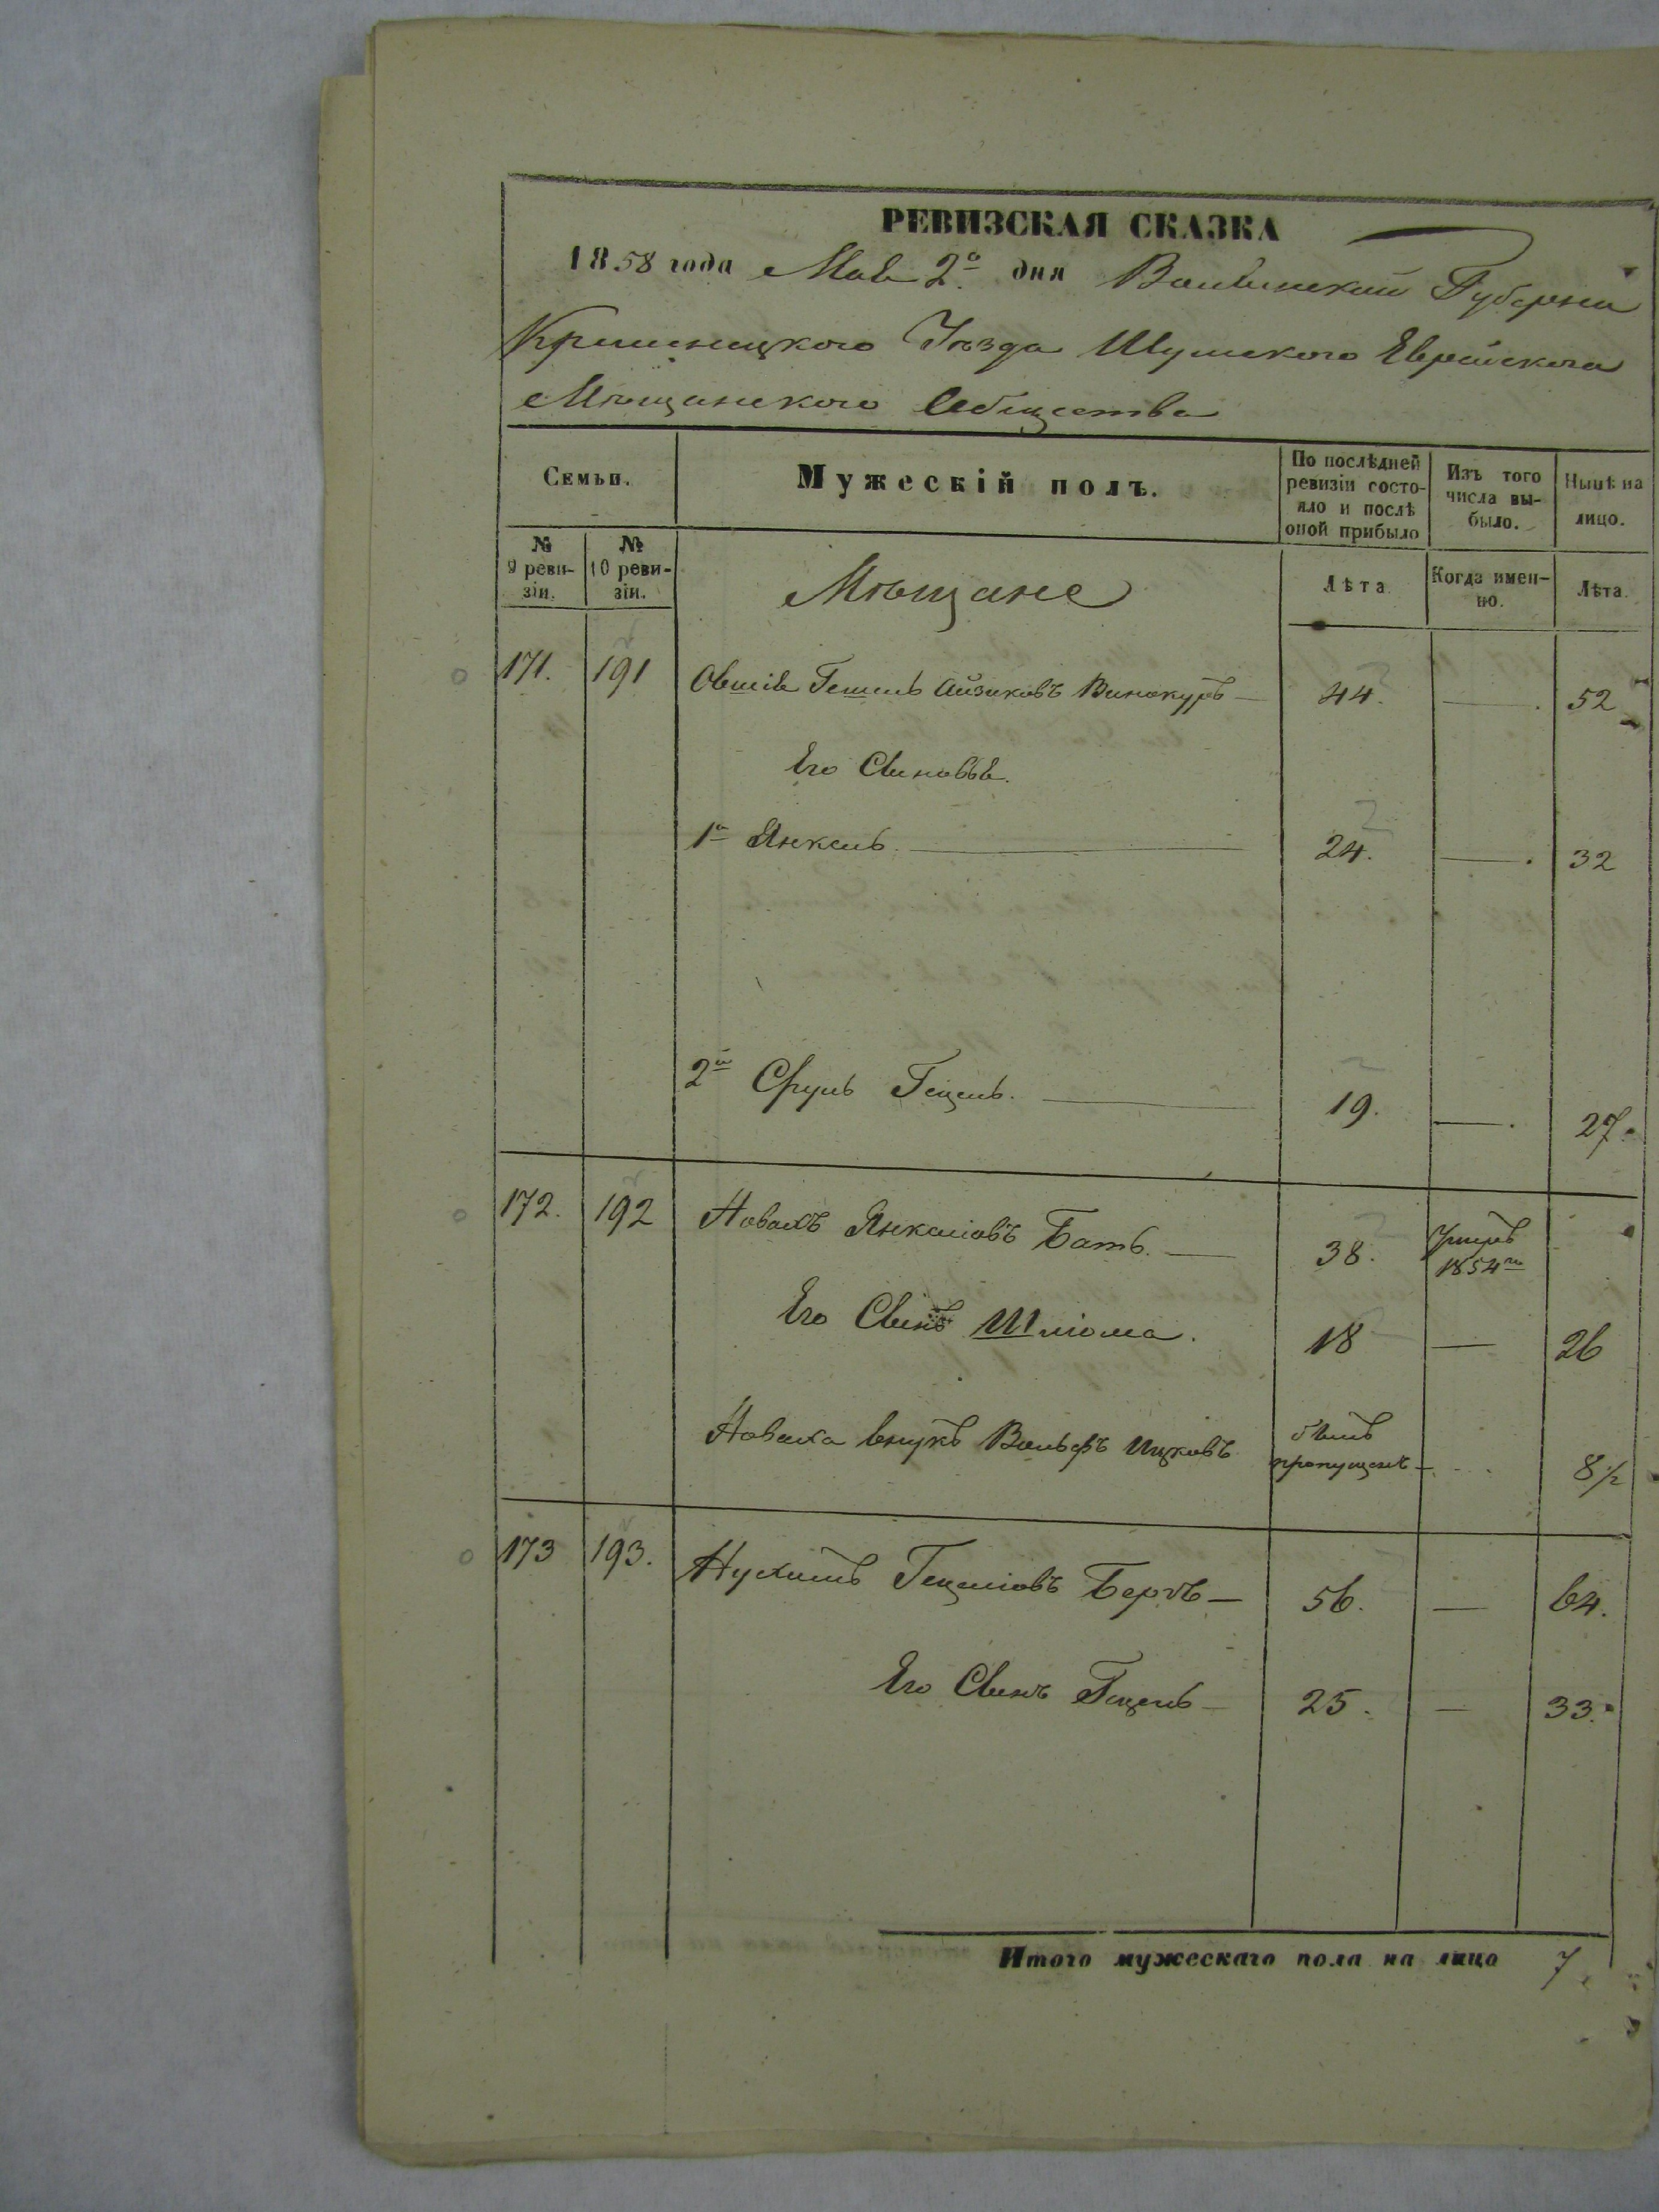 РЕВИЗСКАЯ СКАЗКА
1858 года Мая 2го дня Волынской Губернии
Кременецкого Уѣзда Шумского Еврейского
Мѣщанского Общества
Семьи.
Мужескій полъ.
По послѣдней ревизіи состояло и послѣ оной прибыло
Изъ того числа выбыло.
Нынѣ на лицо.
№ 9 ревизіи.
№ 10 ревизіи.
Мѣщане
Лѣта
Когда именно.
Лѣта.
171. 191 Овшія Гешель Айзиковъ Винокуръ — 44. — 52
Его Сыновья.
1й Янкель — 24. — 32
2й Сруль Гецель. — 19. — 27.
172. 192 Новахъ Янкелiовъ Батъ. — 38. Умеръ 1854го
Его Сынъ Шлiома. 18 — 26
Новаха внукъ Вольфъ Ицковъ былъ пропущенъ — 8 1/2
173 193. Нухимъ Гецелiовъ Беръ — 56. — 64.
Его Сынъ Гецель — 25. — 33.
Итого мужескаго пола на лицо 7